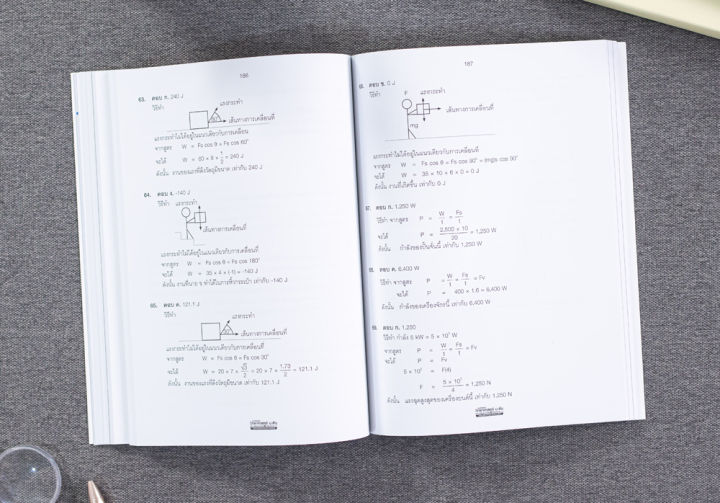 186
63. ตอบ ก. 240 J
วิธีทำ
แรงกระทำ
60°
เส้นทางการเคลื่อนที่
แรงกระทำไม่ได้อยู่ในแนวเดียวกับการเคลื่อน
จากสูตร W = Fs cos θ = Fs cos 60°
จะได้ W = 60 × 8 × 1/2 = 240 J
ดังนั้น งานของแรงที่ดึงวัตถุมีขนาด เท่ากับ 240 J
64. ตอบ ง. -140 J
วิธีทำ แรงกระทำ
เส้นทางการเคลื่อนที่
แรงกระทำไม่ได้อยู่ในแนวเดียวกับการเคลื่อนที่
จากสูตร W = Fs cos θ = Fs cos 180°
จะได้ W = 35 × 4 × (-1) = -140 J
ดังนั้น งานที่นาย ข ทำได้ในการหิ้วกระเป๋า เท่ากับ -140 J
65. ตอบ ค. 121.1 J
วิธีทำ
แรงกระทำ
เส้นทางการเคลื่อนที่
แรงกระทำไม่ได้อยู่ในแนวเดียวกับการเคลื่อนที่
จากสูตร W = Fs cos θ = Fs cos 30°
จะได้ W = 20 × 7 × √3/2 = 20 × 7 × 1.73/2 = 121.1 J
ดังนั้น งานของแรงที่ดึงวัตถุมีขนาด เท่ากับ 121.1 J
187
ตอบ ข. 0 J
วิธีทำ F แรงกระทำ
เส้นทางการเคลื่อนที่
mg
แรงกระทำไม่ได้อยู่ในแนวเดียวกับการเคลื่อนที่
จากสูตร W = Fs cos θ = Fs cos 90° = (mg)s cos 90°
จะได้ W = 35 × 10 × 6 × 0 = 0 J
ดังนั้น งานที่เกิดขึ้น เท่ากับ 0 J
67. ตอบ ก. 1,250 W
วิธีทำ จากสูตร P = W/t = Fs/t
จะได้ P = 2,500 × 10/20 = 1,250 W
ดังนั้น กำลังของปั้นจั่นนี้ เท่ากับ 1,250 W
68. ตอบ ค. 6,400 W
วิธีทำ จากสูตร P = W/t = Fs/t = Fv
จะได้ P = 400 × 1.6 = 6,400 W
ดังนั้น กำลังของเครื่องจักรนี้ เท่ากับ 6,400 W
69. ตอบ ก. 1,250
วิธีทำ กำลัง 5 kW = 5 × 10³ W
จากสูตร P = W/t = Fs/t = Fv
จะได้ P = Fv
5 × 10³ = F(4)
F = 5 × 10³/4 = 1,250 N
ดังนั้น แรงฉุดสูงสุดของเครื่องยนต์นี้ เท่ากับ 1,250 N